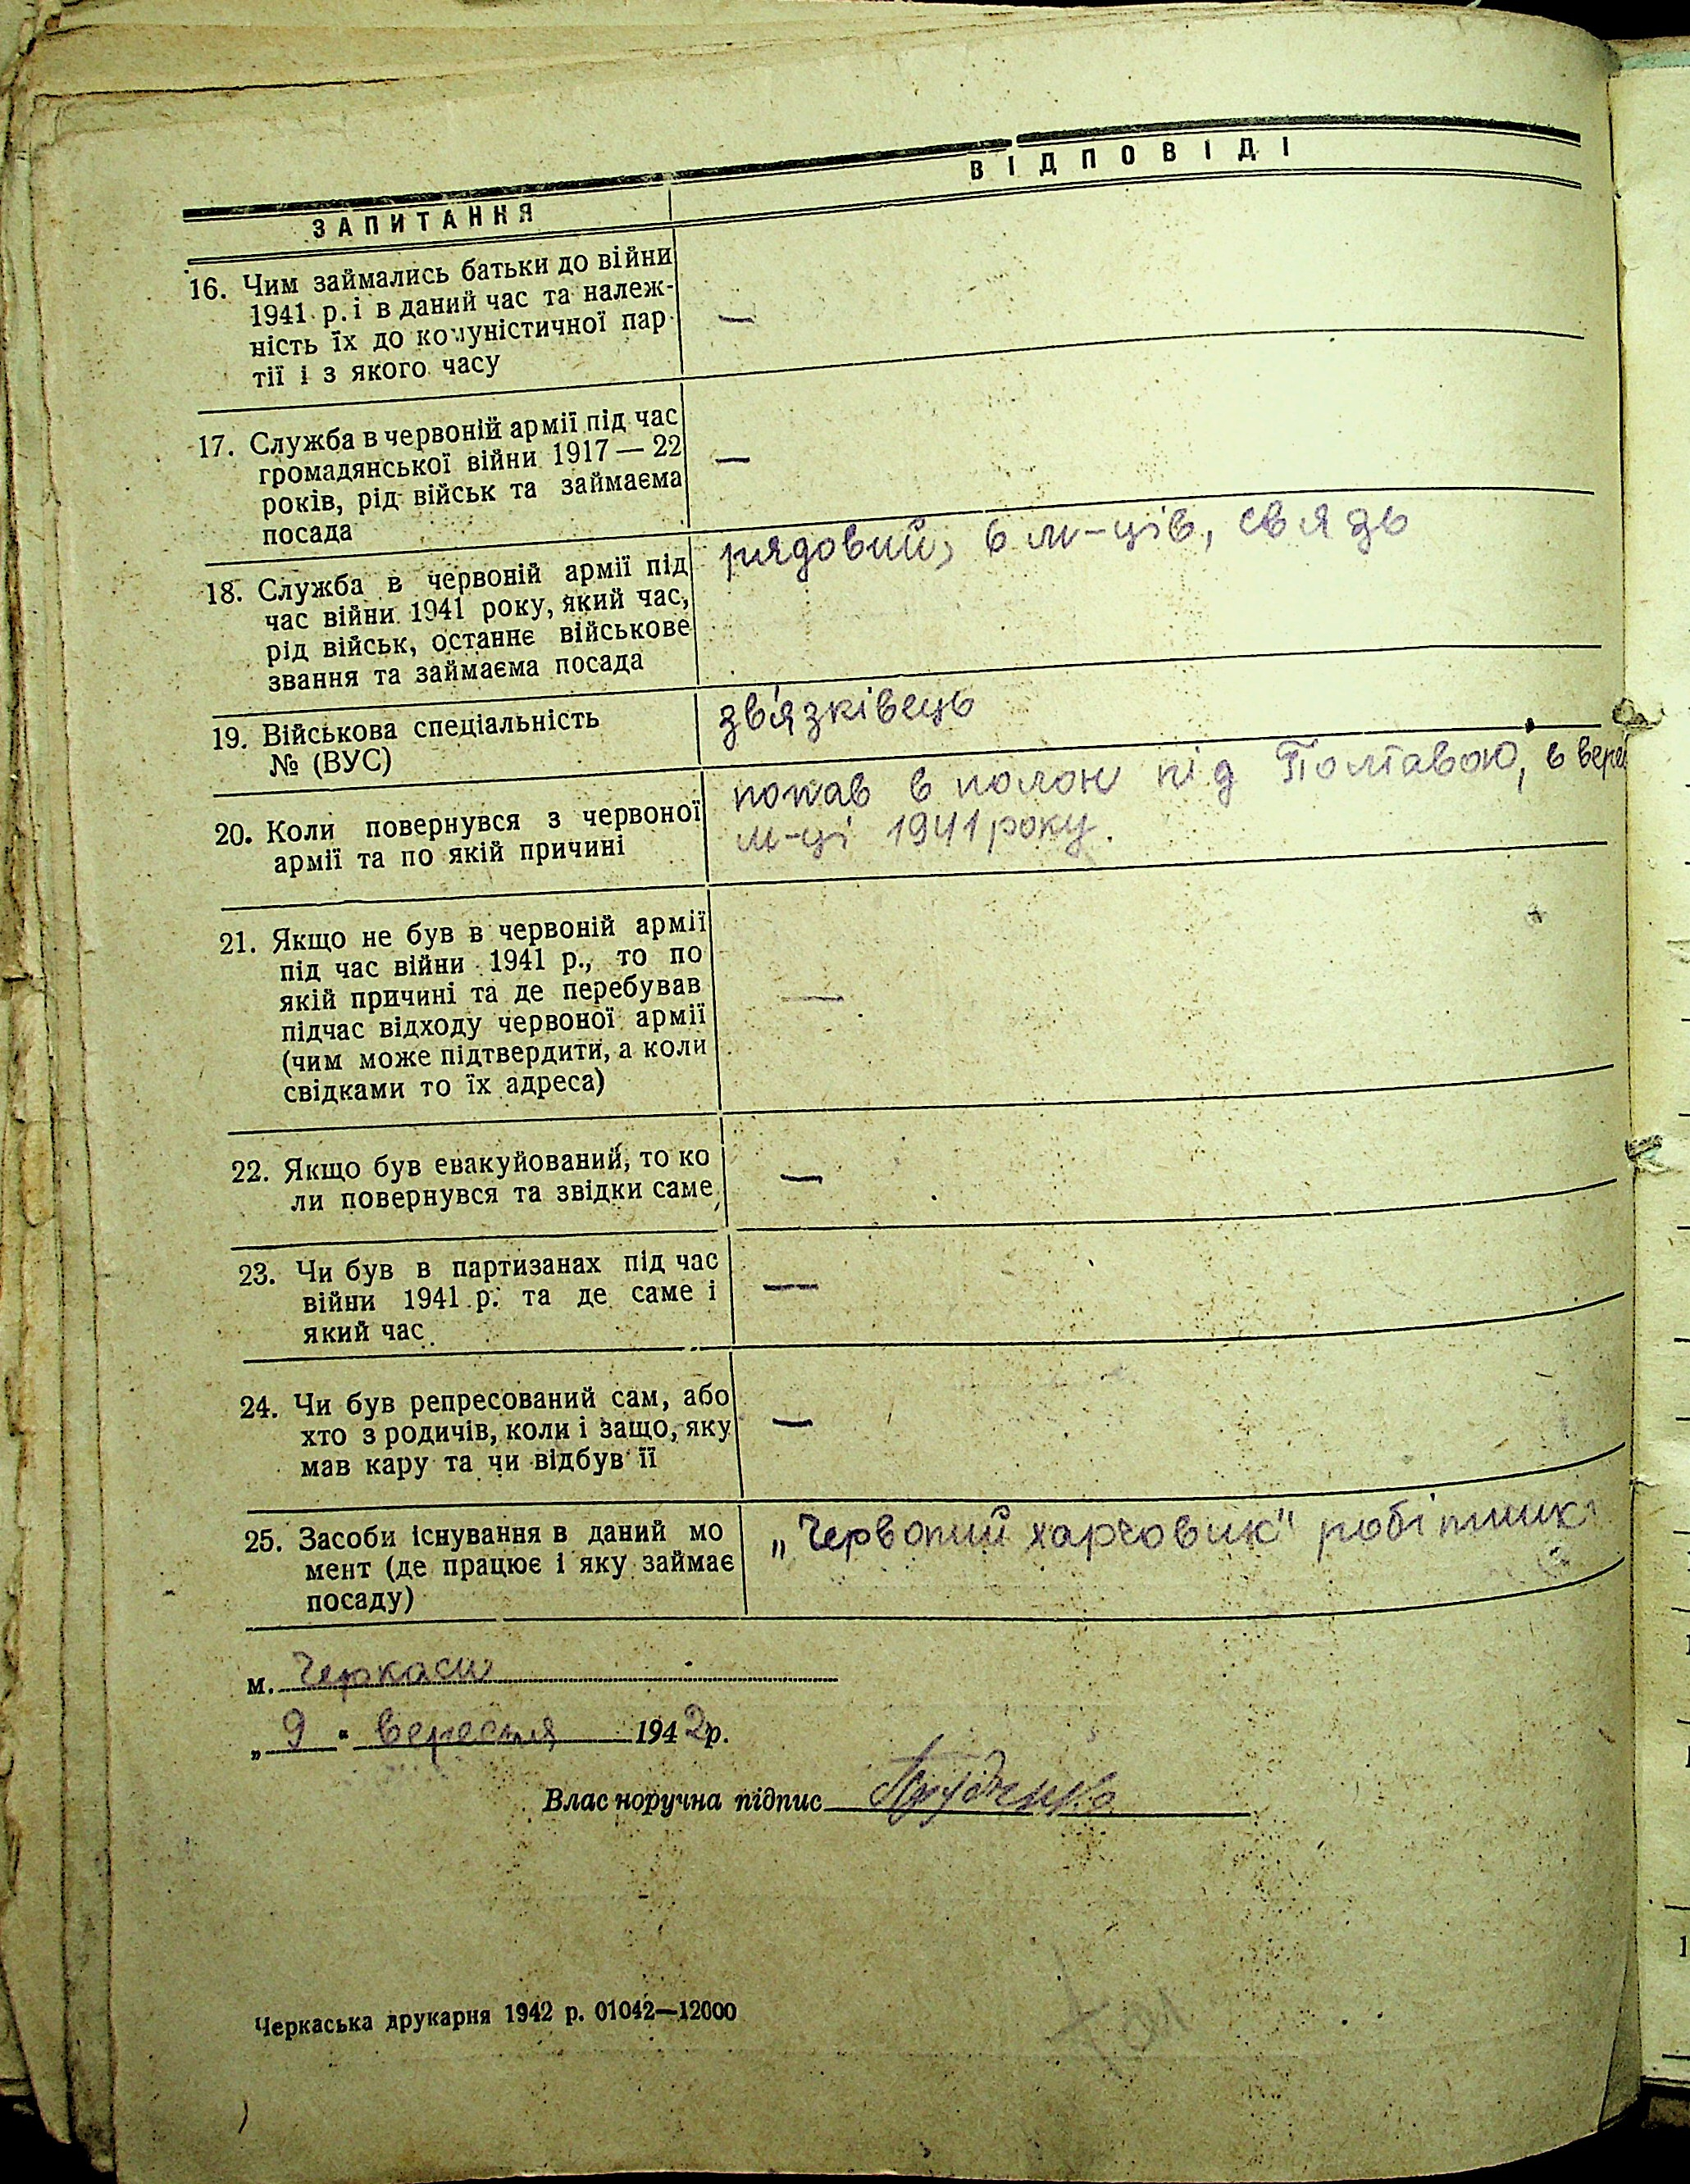 ЗАПИТАННЯ
ВІДПОВІДІ
16. Чим займались батьки до війни
1941 р. і в даний час та належ-
ність їх до комуністичної пар-
тії і з якого часу
—
17. Служба в червоній армії під час
громадянської війни 1917 — 22
років, рід військ та займаєма
посада
—
18. Служба в червоній армії під
час війни 1941 року, який час,
рід військ, останнє військове
звання та займаєма посада
рядовий, 6 м-ців, связь
19. Військова спеціальність
№ (ВУС)
зв'язківець
20. Коли повернувся з червоної
армії та по якій причині
попав в полон під Полтавою, в вере
м-ці 1941 року.
21. Якщо не був в червоній армії
під час війни 1941 р., то по
якій причині та де перебував
підчас відходу червоної армії
(чим може підтвердити, а коли
свідками то їх адреса)
—
22. Якщо був евакуйований, то ко
ли повернувся та звідки саме
—
23. Чи був в партизанах під час
війни 1941 р. та де саме і
який час
—
24. Чи був репресований сам, або
хто з родичів, коли і защо, яку
мав кару та чи відбув її
—
25. Засоби існування в даний мо
мент (де працює і яку займає
посаду)
„Червоний харчовик" робітник
м. Черкаси
„ 9 " вересня 1942 р.
Власноручна підпис
Черкаська друкарня 1942 р. 01042—12000